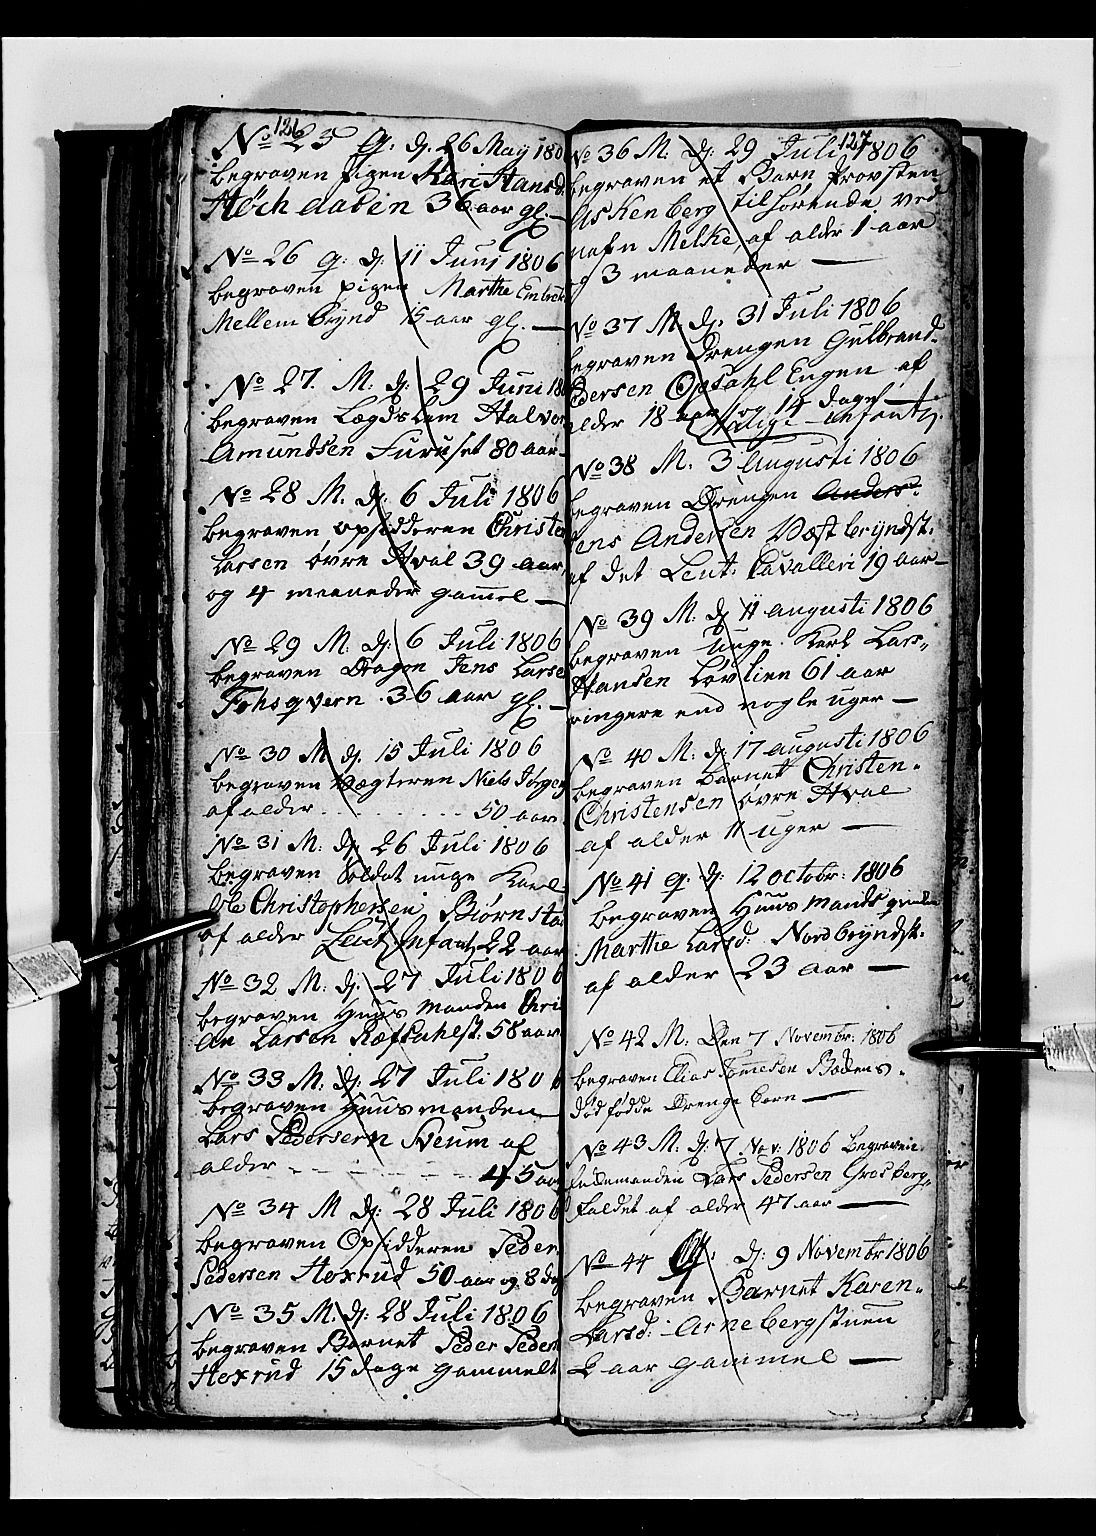 126
No 25 Q. d. 26 May 180
begraven pigen Kari Hansd
Høch daben 36 aar gl.
No 26 Q: d. 11 Juni 1806
begraven pigen Marthe Embret
Mellem Brynd 15 aar gl.
No 27. M: d: 29 Juni 180
begraven Lægdslem Halvor
Amundsen Furuset 80 aar
No 28 M. d. 6 Juli 1806
begraven opsidderen Christe
Larsen øvre Hval 39 aar
og 4 maaneder gamel
No 29 M: d: 6 Juli 1806
begraven Dragon Jens Larse
Fohsqvern 36 aar gl.
No 30 M d. 15 Juli 1806
begraven Vægteren Niels Jörgen
af alder 50 aar
No 31 M: d: 26 Juli 1806
begraven Soldat unge Karl
Ole Christophersen Biørnstad
af alder Leut: Infant 22 aar
No 32 M: d: 27 Juli 1806
begraven Huus manden Chri
an Larsen Ræfsahlst: 58 aar
No 33 M. d: 27 Juli 1806
begraven Huusmanden
Lars Pedersern Sveum af
alder 45 aar
No 34 M d: 28 Juli 1806
begraven Opsidderen Peder
Pedersen Hoxrud 50 aar og 8 dag
No 35 M: d: 28 Juli 1806
begraven Barnet Peder Peders
Hoxrud 15 dage gammelt
127
No 36 M: d: 29 Juli 1806
begraven et Barn Provsten
Askenberg tilhørende ved
nafn Melke, af alder 1 aar
og 3 maaneder
No 37 M d. 31 Juli 1806
begraven Drengen Gulbrand
Pedersen Opsahl Engen af
alder 18 aar og 14 dage
Infant:
No 38 M. 3 Augusti 1806
begraven Drengen Anders
Jens Andersen Væst bryndst:
af det Leut: Cavalleri 19 aar
No 39 M: d 11 augusti 1806
begraven unge Karl Lars
Hansen Løvlien 61 aar
ringere end nogle uger
No 40 M: d: 17 augusti 1806
begraven barnet Christen
Christensen øvre Hval
af alder 11 uger
No 41 Q: d: 12 octobr: 1806
begraven Huus mands qvinde
Marthe Larsd: Nordbryndsk:
af alder 23 aar
No 42 M: Den 7 Novembr: 1806
begraven Elias Tomesen Bødens
død fødde Drenge barn
No 43 M: d: 7 Nov: 1806 Begraven
Lars Pedersen Grasberg
faldet af alder 47 aar
No 44 Q: d: 9 Novembr 1806
begraven Barnet Karen
Larsd: Arnebergstuen
2 aar gammel